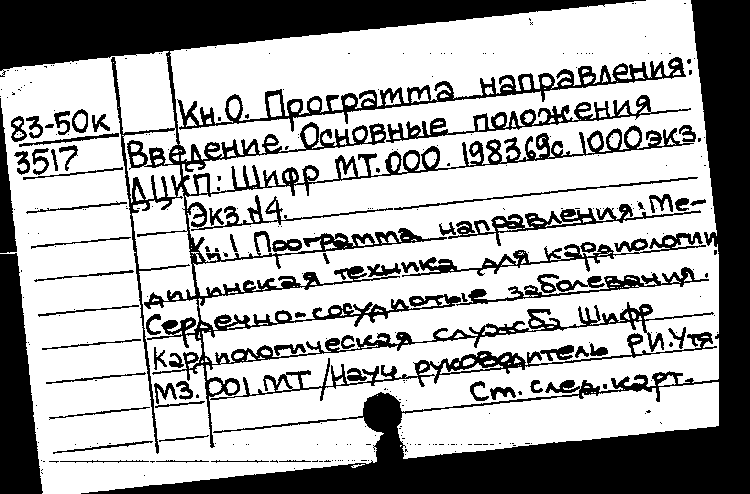 83-50к
3517
Кн.0. Программа направления:
Введение. Основные положения
ДЦКП: Шифр МТ.000. 1983 69с. 1000экз.
Экз.№4.
Кн.1. Программа направления: Ме-
дицинская техника для кардиологии
Сердечно-сосудистые заболевания.
Кардиологическая служба Шифр
МЗ.001.МТ /Науч. руководитель Р.И.Утя-
См. след. карт.